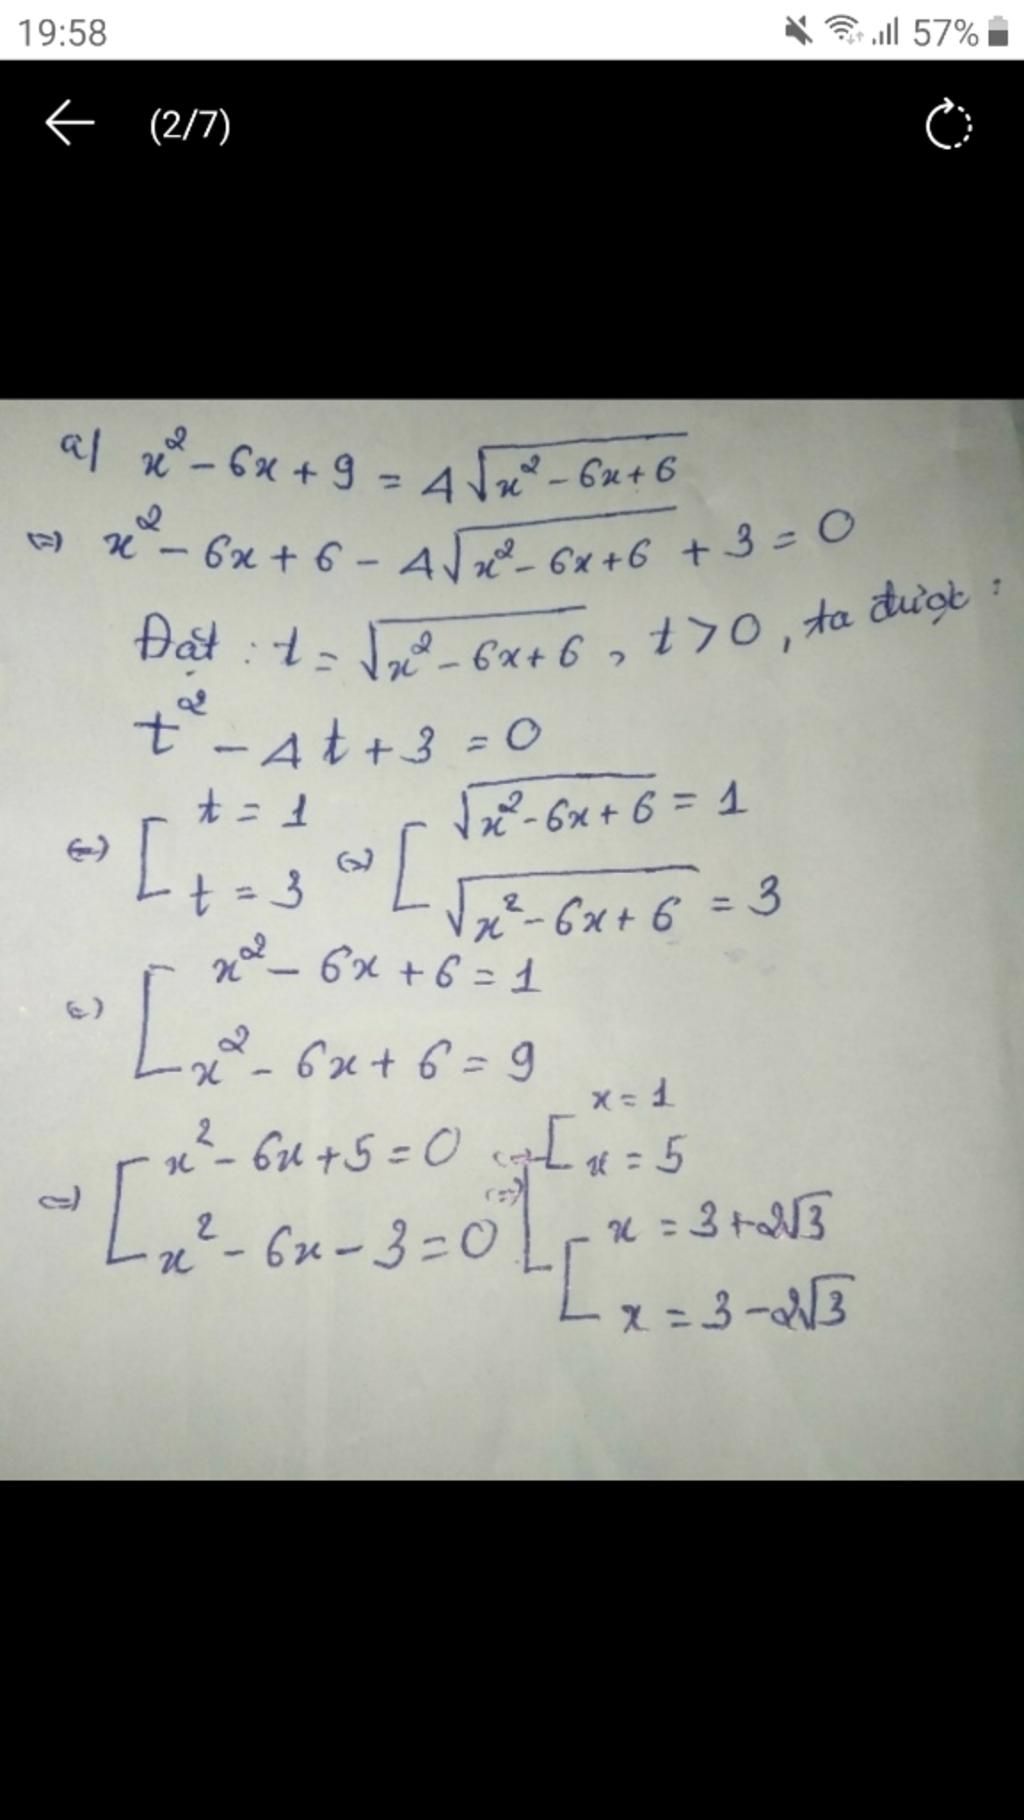 19:58 57%
(2/7)
a) x² - 6x + 9 = 4√(x² - 6x + 6)
(=) x² - 6x + 6 - 4√(x² - 6x + 6) + 3 = 0
Đặt : t = √(x² - 6x + 6) , t > 0 , ta được :
t² - 4t + 3 = 0
(=) [ t = 1 (=) [ √(x² - 6x + 6) = 1
t = 3 √(x² - 6x + 6) = 3
(=) [ x² - 6x + 6 = 1
x² - 6x + 6 = 9
x = 1
(=) [ x² - 6x + 5 = 0 (=) [ x = 5
x² - 6x - 3 = 0 (=) [ x = 3 + 2√3
x = 3 - 2√3